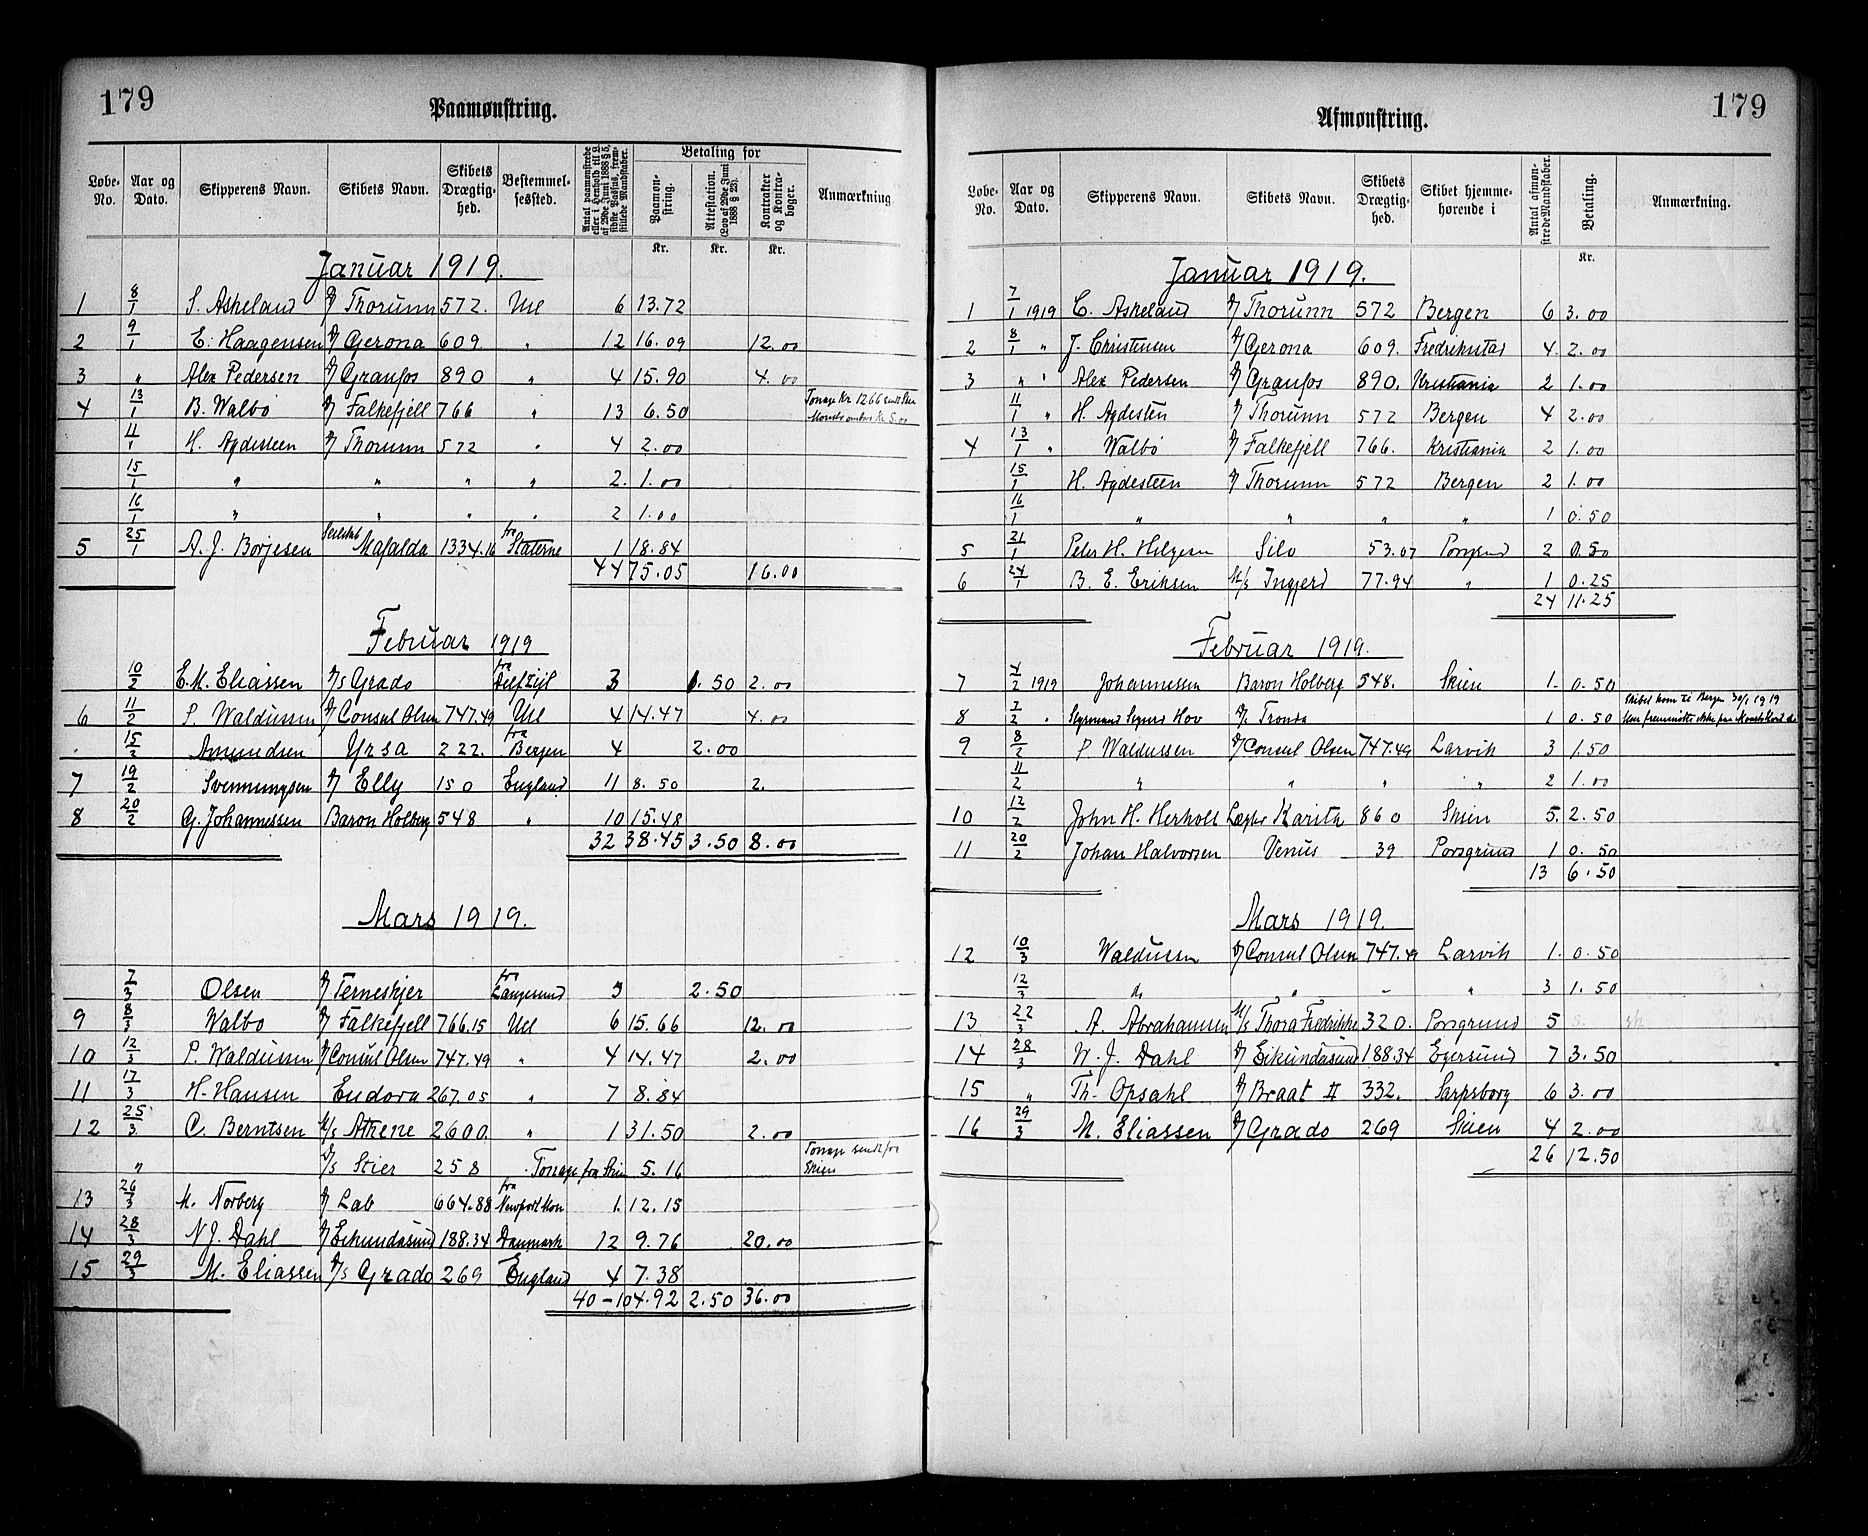 179
Paamønstring.
Løbe-No. Aar og Dato. Skipperens Navn. Skibets Navn. Skibets Drægtighed. Bestemmelsessted. Antal paamønstrede eller i Henhold til L. af 29de Juni 1888 § 5, sidste Passus, fremstillede Mandskaber. Betaling for Paamønstring. Attestation. (Lov af 29de Juni 1888 § 23). Kontrakter og Kontrabøger. Anmærkning
Kr. Kr. Kr.
Januar 1919.
1 8/1 S. Askeland D/ Thorunn 572. Utl 6 13.72
2 9/1 E. Haagensen D/ Gerona 609 " 12 16.09 12.00
3 " Alex Pedersen D/ Granfos 890 " 4 15.90 4.00
4 13/1 B. Walbo D/ Falkefjell 766 " 13 6.50 Tonnage Kr 1266
11/1 H. Agdesteen D/ Thorunn 572 " 4 2.00
15/1 " " " " 2. 1.00
16/1 " " " " 2 1.00
5 25/1 A. J. Borjesen Seilskib Mafalda 1334.16 fra Staterne 1 18.84
44 75.05 16.00
Februar 1919
10/2 E. M. Eliassen D/s Grado fra Delfzijl 3 1.50 2.00
6 11/2 P. Waldussen D/ Consul Olsen 747.49 Utl 4 14.47 4.00
15/2 Amundsen Yrsa 222. fra Bergen 4 2.00
7 19/2 Svennungsen D/ Elly 150 England 11 8.50 2.
8 20/2 G. Johannessen Baron Holberg 548 " 10 15.48
32 38.45 3.50 8.00
Mars 1919.
7/3 Olsen D/ Terneskjer fra Langesund 3 2.50
9 8/3 Walbo D/ Falkefjell 766.15 Utl 6 15.66 12.00
10 12/3 P. Waldussen D/ Consul Olsen 747.49 " 4 14.47 2.00
11 17/3 H. Hansen Eudora 267.05 " 7 8.84
12 25/3 C. Berntsen M/s Athene 2600 " 1 31.50 2.00
" D/s Stier 258 Tonnage fra Skien 5.16 Tonnage sendt fra Skien
13 26/3 M. Norberg D/ Lab 664.88 fra Newport Mon 1. 12.15
14 28/3 N J. Dahl D/ Eikundasund 188.34 Danmark 12 9.76 20.00
15 29/3 M. Eliassen D/s Grado 269 England 4 7.38
40 - 104.92 2.50 36.00
179
Afmønstring.
Løbe-No. Aar og Dato. Skipperens Navn. Skibets Navn. Skibets Drægtighed. Skibet hjemmehørende i Antal afmønstrede Mandskaber. Betaling. Anmærkning.
Kr.
Januar 1919.
1 7/1 1919 C. Askeland D/ Thorunn 572 Bergen 6 3.00
2 8/1 " J. Christensen D/ Gerona 609. Fredrikstad 4 2.00
3 " " Alex Pedersen D/ Granfos 890. Kristiania 2 1.00
11/1 " H. Agdesten D/ Thorunn 572 Bergen 4 2.00
4 13/1 " Walbo D/ Falkefjell 766. Kristiania 2 1.00
15/1 H. Agdesteen D/ Thorunn 572 Bergen 2 1.00
16/1 " " " " 1 0.50
5 21/1 Peter H. Helgesen Silo 53.07 Porsgrund 2 0.50
6 24/1 B. E. Eriksen M/s Ingjerd 77.94 " 1 0.25
24 11.25
Februar 1919.
7 4/2 1919 Johannessen Baron Holberg 548. Skien 1. 0.50
8 7/2 " Styrmand Sigurd Hov D/ Tronda 1 0.50 Skibet kom til Bergen 30/1 1919
9 8/2 P. Waldussen D/ Consul Olsen 747.49 Larvik 3 1.50
11/2 " " " " 2 1.00
10 12/2 John H. Herholt Lægter Karitа 860 Skien 5. 2.50
11 20/2 Johan Halvorsen Venus 39 Porsgrund 1 0.50
13 6.50
Mars 1919.
12 10/3 Waldussen D/ Consul Olsen 747.49 Larvik 1. 0.50
12/3 do " - " 3 1.50
13 22/3 A. Abrahamsen M/s Thora Fredrikke 320. Porsgrund 5
14 28/3 N. J. Dahl D/ Eikundasund 188.34 Egersund 7 3.50
15 " Th. Opsahl D/ Braat II 332. Sarpsborg 6 3.00
16 29/3 M. Eliassen D/ Grado 269 Skien 4 2.00
26 12.50